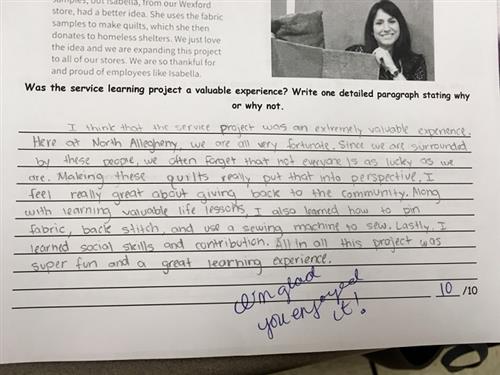 samples, but Isabella, from our Wexford
store, had a better idea. She uses the fabric
samples to make quilts, which she then
donates to homeless shelters. We just love
the idea and we are expanding this project
to all of our stores. We are so thankful for
and proud of employees like Isabella.
Was the service learning project a valuable experience? Write one detailed paragraph stating why
or why not.
I think that the service project was an extremely valuable experience.
Here at North Allegheny, we are all very fortunate. Since we are surrounded
by these people, we often forget that not everyone is as lucky as we
are. Making these quilts really put that into perspective. I
feel really great about giving back to the community. Along
with learning valuable life lessons, I also learned how to pin
fabric, back stitch, and use a sewing machine to sew. Lastly, I
learned social skills and contribution. All in all this project was
super fun and a great learning experience.
I'm glad
you enjoyed
it!
10 /10